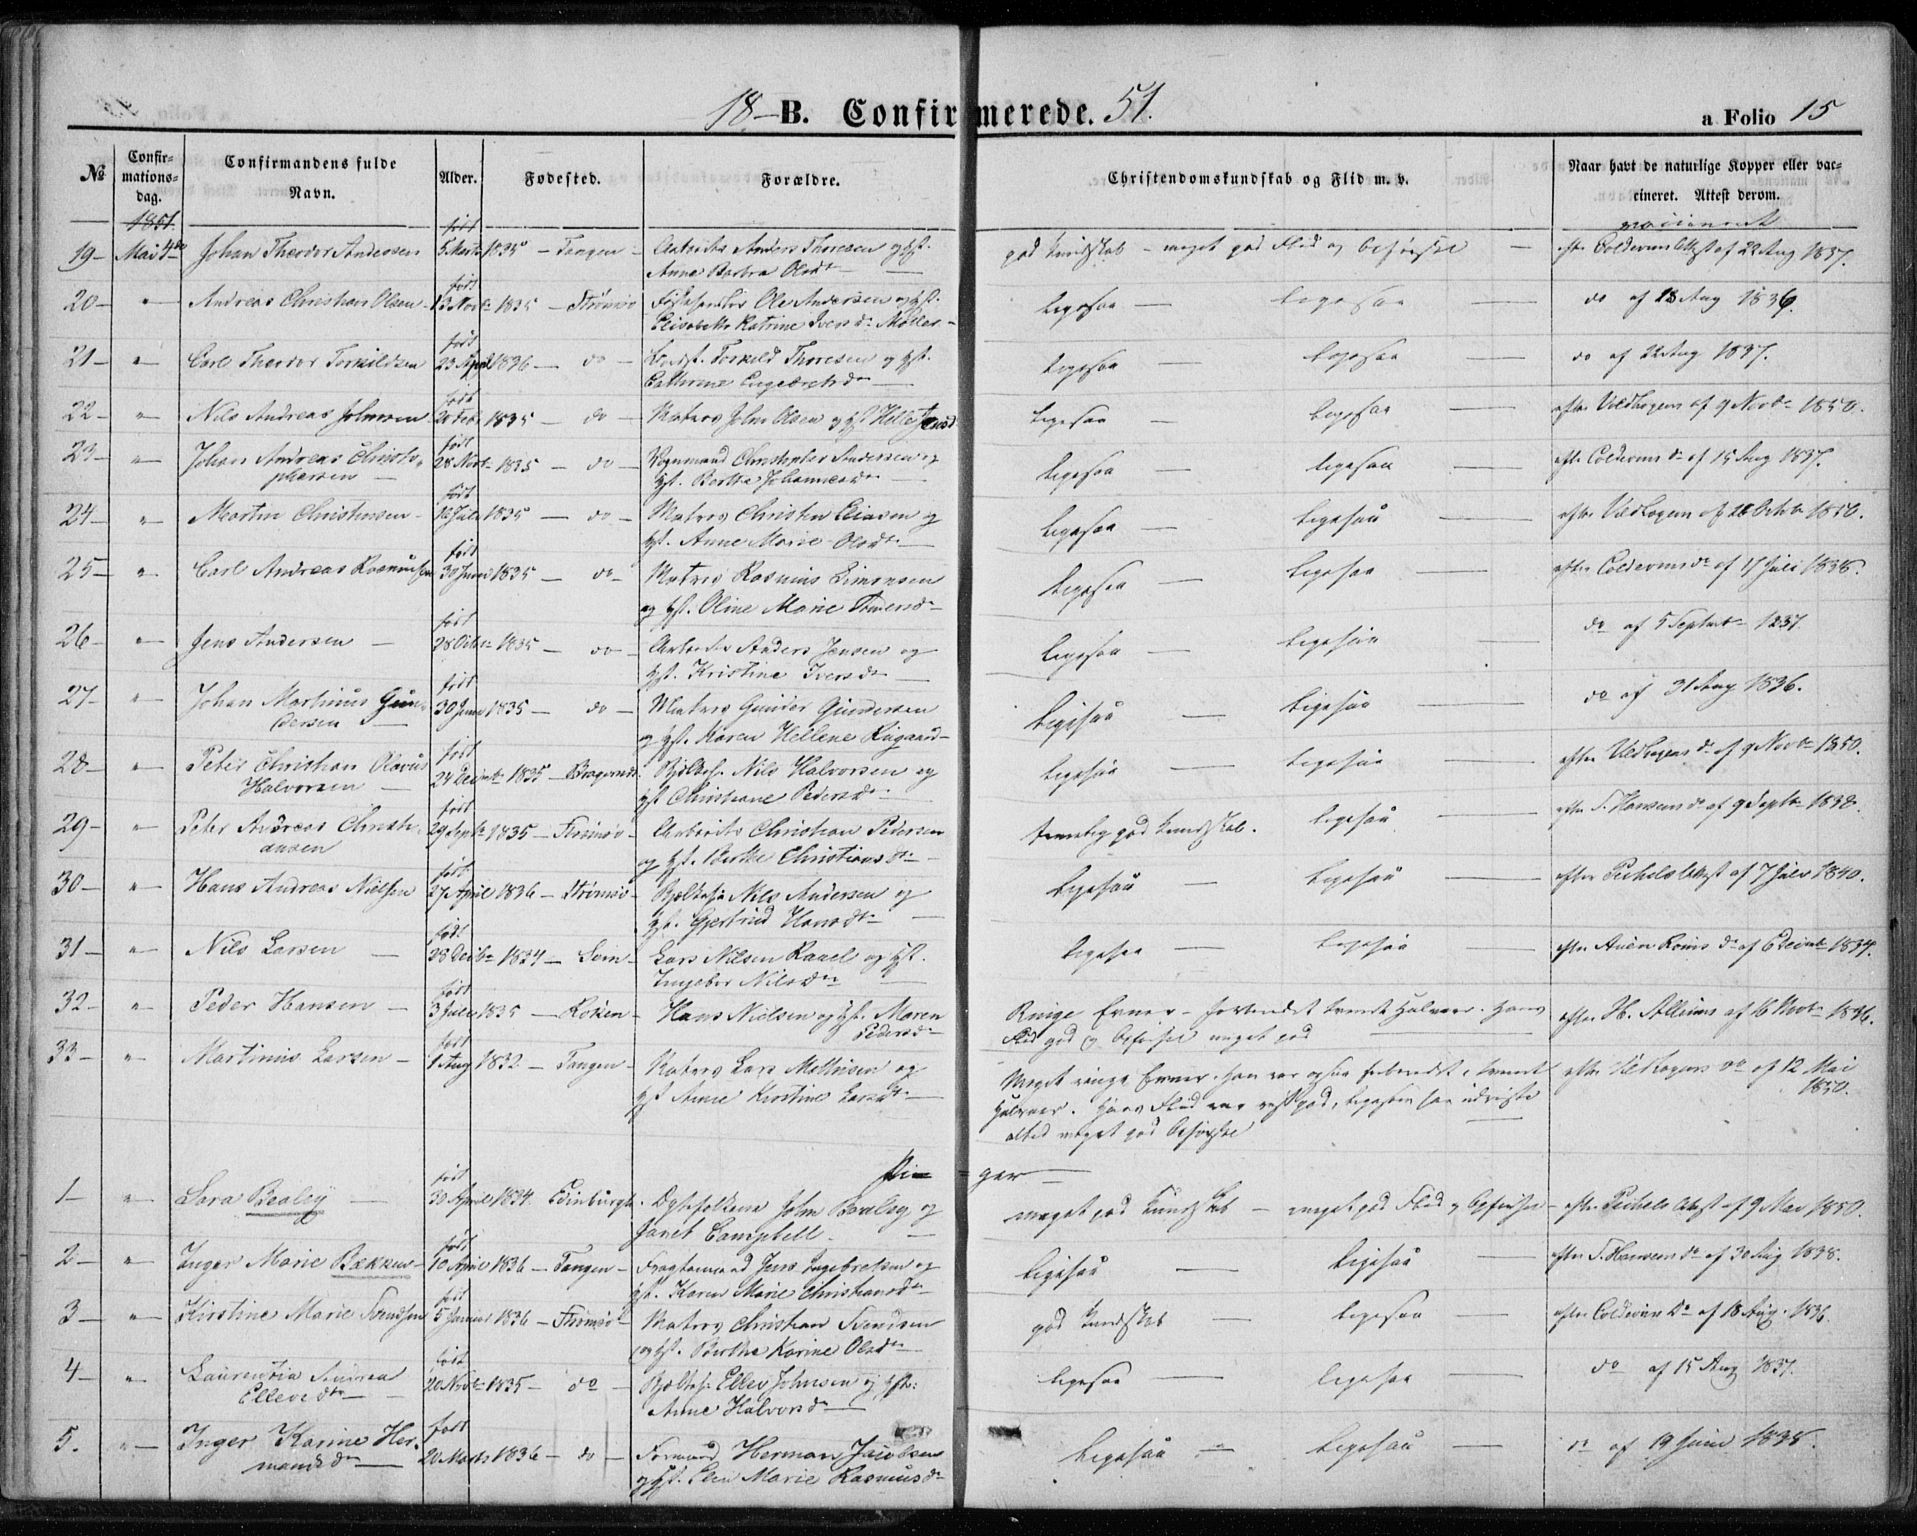 18 – B. Confirmerede. 51.
a Folio 15
№
Confir-
mations-
dag.
Confirmandens fulde
Navn.
Alder.
Fødested.
Forældre.
Christendomskundskab og Flid m. v.
Naar havt de naturlige Kopper eller vac-
cineret. Attest derom.
1851
født
vaccineret
19 – Mai 4de Johan Theodor Andersen 5 Marts 1835 – Tangen – Arbeids Anders Thoresen og Hst. god Kundskab – meget god Flid og Opførsel – efter Coldevins Attest af 22 Aug 1837.
Anne Barbra Olsdr –
født
20 – " Andreas Christian Olsen 13 Novbr 1835 – Strømsø Ole Andersen og Hst. ligesaa – ligesaa – do af 18 Aug 1836.
Elisabeth Katrine Iversdr Møller –
født
21 – " Carl Theodor Torkildsen 23 April 1836 – do – Torkild Thoresen og Hst. ligesaa – ligesaa – do af 22 Aug 1837.
Cathrine Engebretsdr –
født
22 – " Nils Andreas Johnsen 20 Feb 1835 – do – Matros John Olsen og Hst Helle Jensd ligesaa – ligesaa – efter Vildhagens af 9 Novbr 1850.
født
23 – " Johan Andreas Christo- 28 Novbr 1835 – do – Vognmand Christopher Andersen og ligesaa – ligesaa – efter Coldevins do af 15 Aug 1837.
phersen – Hst. Berthe Johannesdr –
født
24 – " Martin Christensen – Juli 1835 – do – Matros Christen Eliasen og ligesaa – ligesaa – efter Vildhagens af 26 Octbr 1850.
Hst. Anne Marie Olsdr –
født
25 – " Carl Andreas Rasmussen 30 Juni 1835 – do – Matros Rasmus Simensen ligesaa – ligesaa – efter Coldevins do af 17 Juli 1838.
og Hst. Oline Marie
født
26 – " Jens Andersen – 28 Octbr 1835 – do – Arbeids Anders Jensen og ligesaa – ligesaa – do af 5 Septbr 1837
Hst. Kristine Iversdr –
født
27 – " Johan Martinus Gun- 30 Juni 1835 – do – Matros Gunder Gundersen ligesaa – ligesaa – do af 31 Aug 1836.
dersen – og Hst. Karen Hellene Rugaard –
født
28 – " Peter Christian Olavus 24 Decembr 1835 – Bragernæs. Nils Halvorsen og ligesaa – ligesaa – efter Vildhagens do af 9 Novbr 1850.
Halvorsen – Hst Christiane Pedersdr –
født
29 – " Peter Andreas Christi- 29 Septbr 1835 – Strømsø – Arbeids Christian Pedersen temmelig god Kundskab. ligesaa – efter T. Hansens do af 9 Septbr 1838.
ansen og Hst. Berthe Christiansdr –
født
30 – " Hans Andreas Nielsen 27 April 1836 – Strømsø – Nils Andersen og ligesaa – ligesaa – efter Pihels Attest af 7 Juli 1840.
Hst. Gjertrud Hansdr –
født
31 – " Nils Larsen – 28 Decbr 1834 – Sem – Lars Nilsen Raael og Hst. ligesaa – ligesaa – efter do af 6 Decembr 1834.
Ingebor Nilsdr –
født
32 – " Peder Hansen – 3 Juli 1835 – Røken – Hans Nielsen og Hst. Maren Ringe Evner – forberedet trende Halvaar. Hans efter H. Alleins af 16 Novbr 1836.
Pedersdr – Flid god og Opførsel meget god –
født
33 – " Martinus Larsen – 1 Aug 1832 – Tangen – Matros Lars Mathisen og Meget ringe Evner. han var ogsaa forberedet i trende efter Vildhagens do af 12 Mai
Hst Anne Kirstine Larsdr – Halvaar. Hans Flid var god, ligesom han udviste 1850.
altid meget god Opførsel
Pi – ger –
født
1 – " Sara Bealey – 30 April 1834. Edinburgh. Ægtefolkene John Bealey og meget god Kundskab – meget god Flid og Opførsel – efter Pihels Attest af 9 Mai 1850.
Janet Campbell. –
født
2 – " Inger Marie Bakken – 10 April 1836 – Tangen – Fragtemand Jens Ingebretsen og ligesaa – ligesaa – efter T. Hansens do af 30 Aug 1838.
Hst. Karen Marie Christiansdr –
født
3 – " Kirstine Marie Svendsen 5 Januar 1836 – Strømsø – Matros Christian Svendsen god Kundskab – ligesaa – efter Coldevin do af 18 Aug. 1836.
og Hst. Berthe Karine Olsdr –
født
4 – " Laurentia Andrea 20 Novbr 1835 – do – Ellev Johnsen og Hst: ligesaa – ligesaa – do af 15 Aug 1837.
Ellevsdr – Anne Halvorsdr –
født
5. " – Inger Karine Her- 20 Marts 1836 – do – Formand Herman Jacobsen ligesaa – ligesaa – do af 19 Juni 1838.
mandsdr – og Hst. Elen Marie Rasmusdr